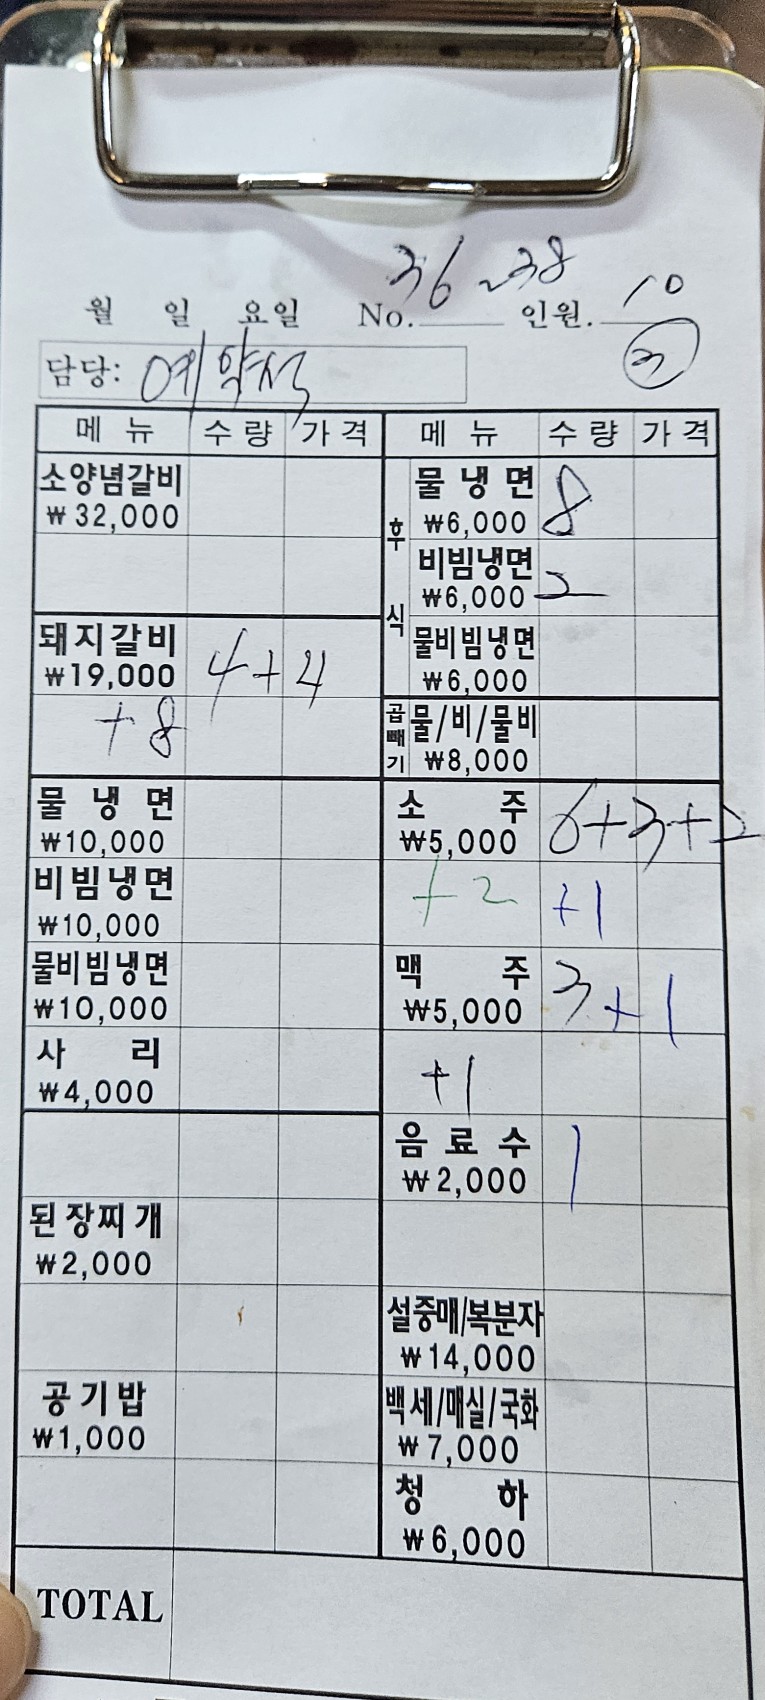 36~38 10
월 일 요일 No. 인원.
③
담당: 예약석
메뉴 수량 가격 메뉴 수량 가격
소양념갈비
₩32,000
후식
물냉면 8
₩6,000
비빔냉면 2
₩6,000
물비빔냉면
₩6,000
돼지갈비 4+4
₩19,000
+8
곱빼기
물/비/물비
₩8,000
물냉면
₩10,000
소주 6+3+2
₩5,000
+2 +1
비빔냉면
₩10,000
물비빔냉면
₩10,000
맥주 3+1
₩5,000
+1
사리
₩4,000
음료수 1
₩2,000
된장찌개
₩2,000
설중매/복분자
₩14,000
공기밥
₩1,000
백세/매실/국화
₩7,000
청하
₩6,000
TOTAL